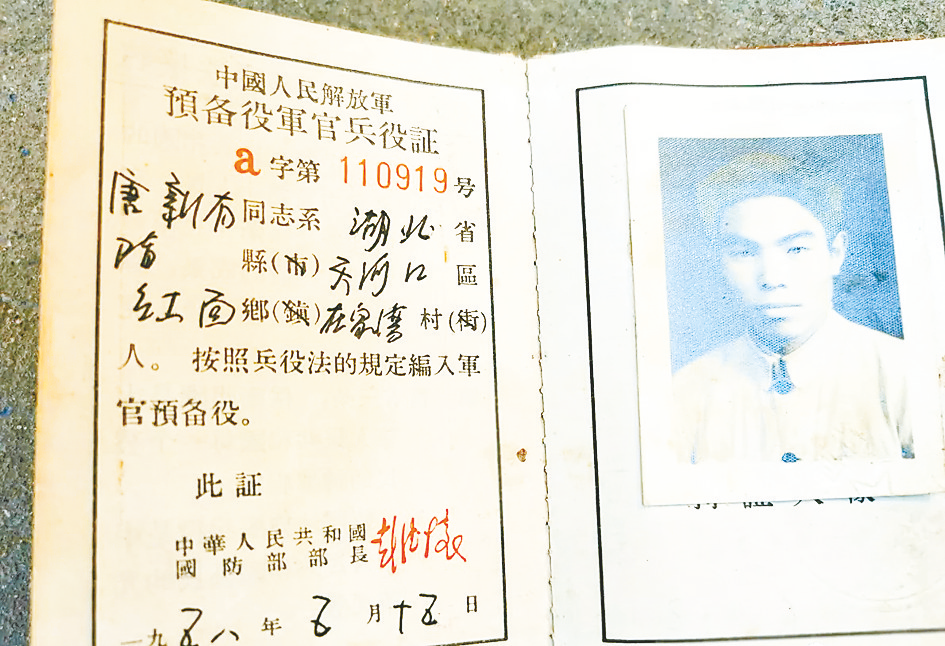 中國人民解放軍
預备役軍官兵役証
a字第 110919号
唐新有同志系 湖北 省
隋 縣(市)天河口 區
红面鄉(鎮)在家湾 村(街)
人。 按照兵役法的規定編入軍
官預备役。
此証
中華人民共和國
國防部部長 彭德懷
一九五八年 五 月十五日